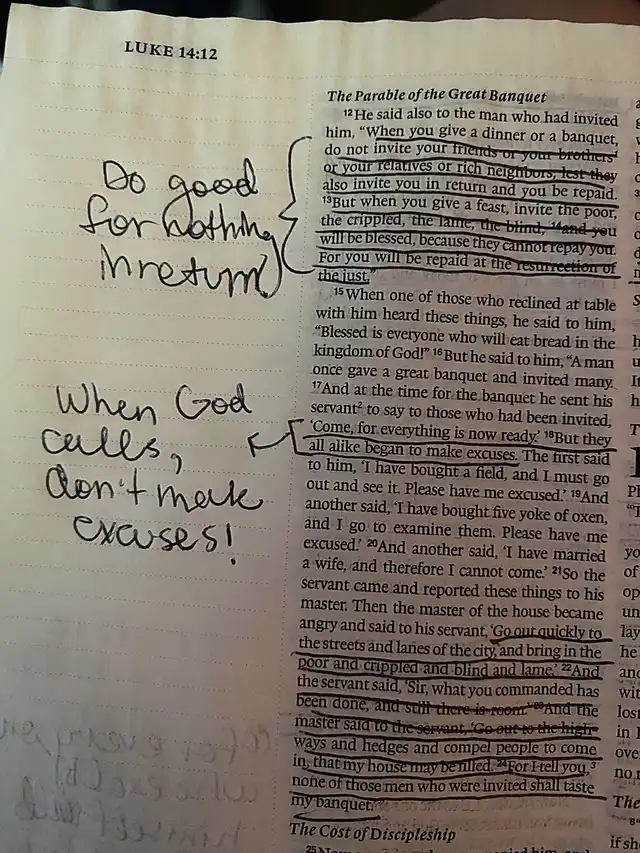 LUKE 14:12
Do good
for nothing
in return!
When God
calls,
don't make
excuses!
The Parable of the Great Banquet
12 He said also to the man who had invited
him, “When you give a dinner or a banquet,
do not invite your friends or your brothers
or your relatives or rich neighbors, lest they
also invite you in return and you be repaid.
13 But when you give a feast, invite the poor,
the crippled, the lame, the blind, 14 and you
will be blessed, because they cannot repay you.
For you will be repaid at the resurrection of
the just.”
15 When one of those who reclined at table
with him heard these things, he said to him,
“Blessed is everyone who will eat bread in the
kingdom of God!” 16 But he said to him, “A man
once gave a great banquet and invited many.
17 And at the time for the banquet he sent his
servant2 to say to those who had been invited,
‘Come, for everything is now ready.’ 18 But they
all alike began to make excuses. The first said
to him, ‘I have bought a field, and I must go
out and see it. Please have me excused.’ 19 And
another said, ‘I have bought five yoke of oxen,
and I go to examine them. Please have me
excused.’ 20 And another said, ‘I have married
a wife, and therefore I cannot come.’ 21 So the
servant came and reported these things to his
master. Then the master of the house became
angry and said to his servant, ‘Go out quickly to
the streets and lanes of the city, and bring in the
poor and crippled and blind and lame.’ 22 And
the servant said, ‘Sir, what you commanded has
been done, and still there is room.’ 23 And the
master said to the servant, ‘Go out to the high-
ways and hedges and compel people to come
in, that my house may be filled. 24 For I tell you,3
none of those men who were invited shall taste
my banquet.’”
The Cost of Discipleship